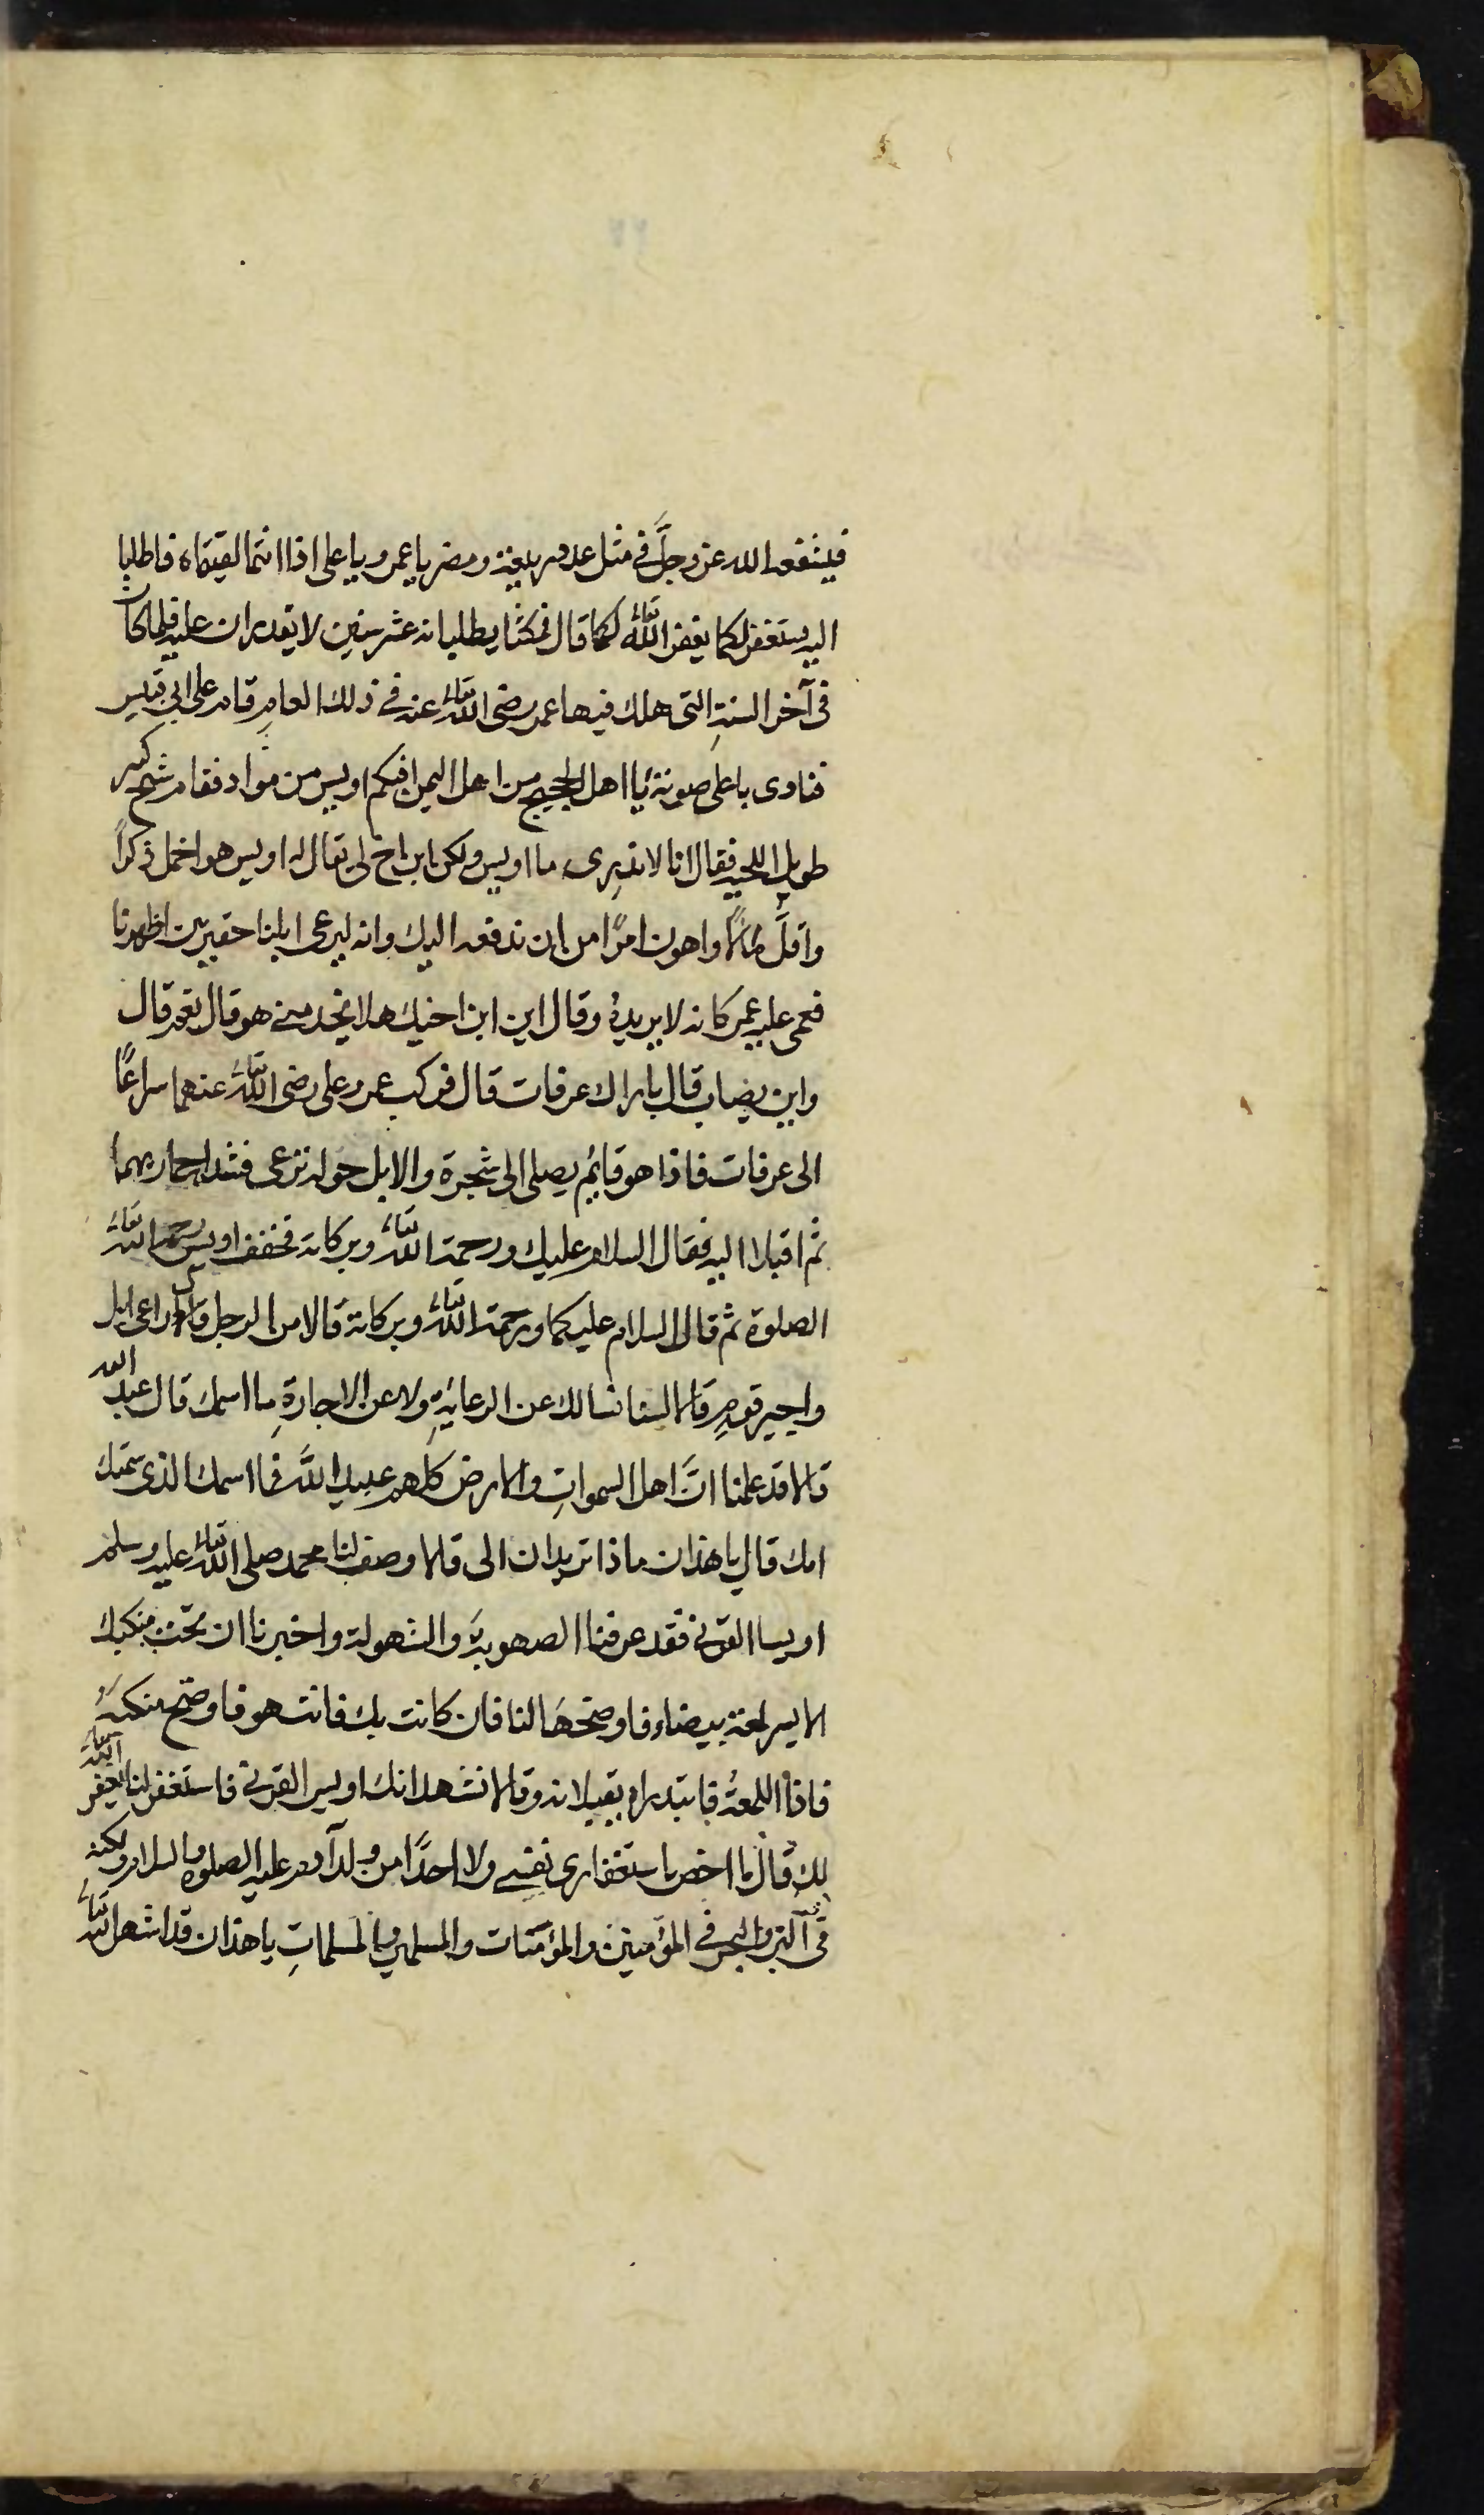 فيشفعه الله عز وجلَّ في مثل عدد ربيعة ومضر يا عمر ويا علي اذا انتما لقيتماه فاطلبا
اليه يستغفر لكما يغفر اللّٰه تعالى لكما قال فمكثا يطلبانه عشر سنين لا يقدران عليه فلما كان
في آخر السنةِ التي هلك فيها عمر رضى اللّٰه تعالى عنه في ذلك العامِ قام على ابي قبيس
فنادى باعلى صوته يا اهل الحجيج من اهل اليمن افيكم اويس من مراد فقام شيخ كبير
طويل اللحية فقال انا لا ندرى ما اويس ولكن ابن اخ لي يقال له اويس هو اخمل ذكراً
واقلَّ مالاً واهون امرًا من ان ندفعه اليك وانه ليرعى ابلنا حقير بين اظهرنا
فعمى عليه عمر كانه لا يريدهُ وقال اين ابن اخيك هذا ايحد منه هو قال نعم قال
واين يصاب قال باراك عرفات قال فركب عمر وعلى رضى اللّٰه تعالى عنهما سراعًا
الى عرفات فاذا هو قايم يصلى الى شجرة والابل حوله ترعى فشدا حماريهما
ثم اقبلا اليه فقال السلام عليك ورحمة اللّٰه تعالى وبركاته فخفف اويس رحمه اللّٰه تعالى
الصلوة ثم قال السلام عليكما ورحمة اللّٰه تعالى وبركاته قالا من الرجل قال راعى ابل
واجير قومٍ قالا لسنا نسالك عن الرعايةِ ولا عن الاجارةِ ما اسمك قال عبد الله
قالا قد علمنا انَّ اهل السمواتِ والارض كلهم عبيد اللّٰه فما اسمك الذى سمتك
امك قال يا هذان ماذا تريدان الى قالا وصف لنا محمد صلى اللّٰه تعالى عليه وسلم
اويسا القرني فقد عرفنا الصهوبةَ والشهولة واخبرنا ان تحت منكبك
الايسر لمعة بيضاء فاوضحها لنا فان كانت بك فانت هو فاوضح منكبهُ
فاذا اللمعةُ فابتدراه يقبلانه وقالا نشهد انك اويس القرني فاستغفر لنا يغفر اللّٰه تعالى
لك قال ما اخص باستغفارى نفسي ولا احدًا من ولد آدم عليه الصلوة والسلام ولكنه
في البر والبحر في المؤمنين والمؤمنات والمسلمين والمسلماتِ يا هذان قد اشهر اللّٰه تعالى